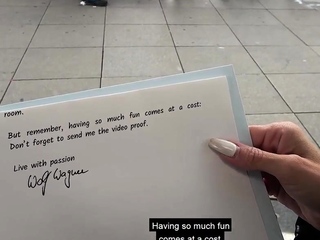 room.
But remember, having so much fun comes at a cost:
Don't forget to send me the video proof.
Live with passion
Wolf Wagner
Having so much fun
comes at a cost